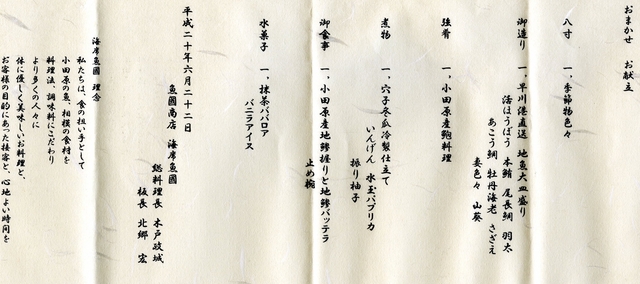 おまかせ お献立
八寸 一、季節物色々
御造り 一、早川港直送 地魚大皿盛り
活ほうぼう 本鮪 尾長鯛 羽太
あこう鯛 牡丹海老 さざえ
妻色々 山葵
強肴 一、小田原産鮑料理
煮物 一、穴子冬瓜冷製仕立て
いんげん 水玉パプリカ
振り柚子
御食事 一、小田原産地鯵握りと地鯵バッテラ
止め椀
水菓子 一、抹茶ババロア
バニラアイス
平成二十年六月二十二日
魚國商店 海席魚國
総料理長 木戸政城
板長 北郷 宏
海席魚國 理念
私たちは、食の担い手として
小田原の魚、相模の食材を
料理法、調味料にこだわり
より多くの人々に
体に優しく美味しいお料理と、
お客様の目的にあった接客と、心地よい時間を